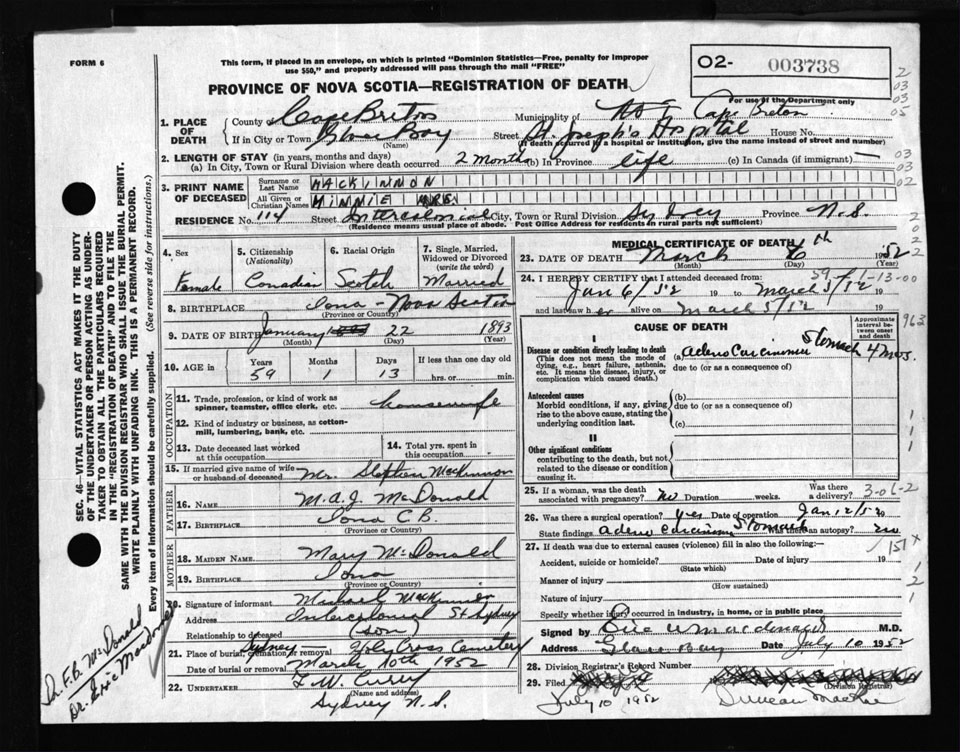 FORM 6
This form, if placed in an envelope, on which is printed "Dominion Statistics—Free, penalty for improper
use $50," and properly addressed will pass through the mail "FREE"
O2- 003738
PROVINCE OF NOVA SCOTIA—REGISTRATION OF DEATH
For use of the Department only
2
03
03
05
1. PLACE OF DEATH
County of Cape Breton Municipality of Cape Breton
If in City or Town Glace Bay Street St. Joseph's Hospital House No.
(Name) (If death occurred in a hospital or institution, give the name instead of street and number)
2. LENGTH OF STAY (in years, months and days)
(a) In City, Town or Rural Division where death occurred 2 months (b) In Province life (c) In Canada (if immigrant) —
03
03
02
3. PRINT NAME OF DECEASED
Surname or Last Name MACKINNON
All Given or Christian Names MINNIE MRS.
RESIDENCE No. 114 Street Intercolonial City, Town or Rural Division Sydney Province N.S.
(Residence means usual place of abode. Post Office Address for residents in rural parts not sufficient)
4. Sex
Female
5. Citizenship (Nationality)
Canadian
6. Racial Origin
Scotch
7. Single, Married, Widowed or Divorced (write the word)
Married
8. BIRTHPLACE Iona - Nova Scotia
(Province or Country)
9. DATE OF BIRTH January 22 1893
(Month) (Day) (Year)
10. AGE in
Years Months Days If less than one day old
59 1 13 hrs. or min.
OCCUPATION
11. Trade, profession, or kind of work as
spinner, teamster, office clerk, etc. housewife
12. Kind of industry or business, as cotton-
mill, lumbering, bank, etc.
13. Date deceased last worked
at this occupation
14. Total yrs. spent in
this occupation
15. If married give name of wife
or husband of deceased Mr. Stephen MacKinnon
FATHER
16. NAME M.A.J. McDonald
17. BIRTHPLACE Iona C.B.
(Province or Country)
MOTHER
18. MAIDEN NAME Mary McDonald
19. BIRTHPLACE Iona
(Province or Country)
20. Signature of informant Michael MacKinnon
Address Intercolonial St Sydney
Relationship to deceased (son)
21. Place of burial, cremation or removal Sydney - Holy Cross Cemetery
Date of burial or removal March 10th 1952
22. UNDERTAKER T.W. Curry
(Name and address)
Sydney N.S.
MEDICAL CERTIFICATE OF DEATH
23. DATE OF DEATH March 6th 1952
(Month) (Day) (Year)
24. I HEREBY CERTIFY that I attended deceased from
Jan 6/52 19 to March 5/52 19
and last saw her alive on March 5/52 19
CAUSE OF DEATH
Approximate interval between onset and death
I
Disease or condition directly leading to death
(This does not mean the mode of
dying, e.g., heart failure, asthenia,
etc. It means the disease, injury, or
complication which caused death.)
(a) Adeno Carcinoma Stomach 4 mos.
due to (or as a consequence of)
Antecedent causes
Morbid conditions, if any, giving
rise to the above cause, stating the
underlying condition last.
(b)
due to (or as a consequence of)
(c)
II
Other significant conditions
contributing to the death, but not
related to the disease or condition
causing it.
25. If a woman, was the death
associated with pregnancy? no Duration weeks. Was there
a delivery?
3-06-2
26. Was there a surgical operation? yes Date of operation Jan 12/52 19
State findings Adeno carcinoma Stomach Was there an autopsy? no
27. If death was due to external causes (violence) fill in also the following:—
151 x
Accident, suicide or homicide? Date of injury 19
(State which)
Manner of injury
(How sustained)
Nature of injury
Specify whether injury occurred in industry, in home, or in public place.
Signed by Eric W Macdonald M.D.
Address Glace Bay Date July 10 1952
28. Division Registrar's Record Number
29. Filed July 10 1952 Duncan MacRae
(Division Registrar)
SEC. 46—VITAL STATISTICS ACT MAKES IT THE DUTY
OF THE UNDERTAKER OR PERSON ACTING AS UNDER-
TAKER TO OBTAIN ALL THE PARTICULARS REQUIRED
IN THE "REGISTRATION OF DEATH" AND TO FILE THE
SAME WITH THE DIVISION REGISTRAR WHO SHALL ISSUE THE BURIAL PERMIT.
WRITE PLAINLY WITH UNFADING INK. THIS IS A PERMANENT RECORD.
Every item of information should be carefully supplied. (See reverse side for instructions.)
Dr. F.B. McDonald
Dr. Eric Macdonald